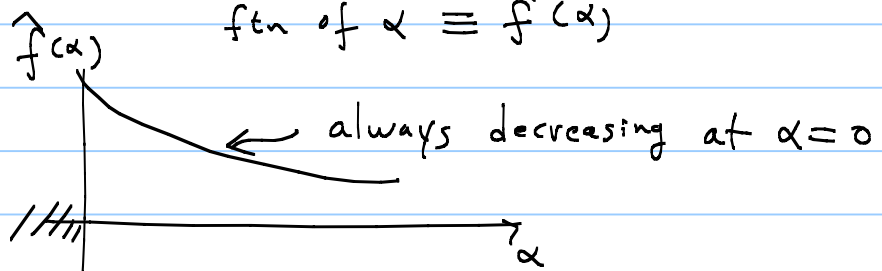 ftn of α ≡ f̂(α)
f̂(α)
always decreasing at α=0
α